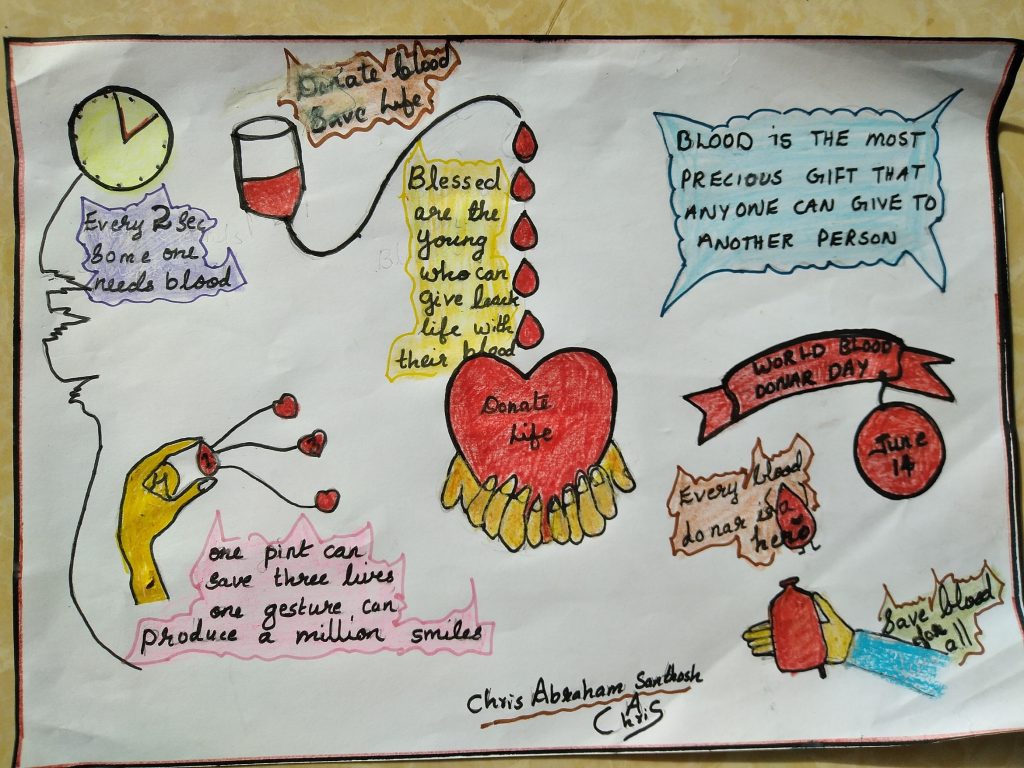 Donate blood
Save Life
Every 2 Sec
Some one
needs blood
Blessed
are the
Young
who can
give back
life with
their blood
BLOOD IS THE MOST
PRECIOUS GIFT THAT
ANYONE CAN GIVE TO
ANOTHER PERSON
WORLD BLOOD
DONAR DAY
June
14
Donate
Life
Every blood
donar is a
hero
one pint can
save three lives
one gesture can
produce a million smiles
Save blood
for all
Chris Abraham Santhosh
A
Chris